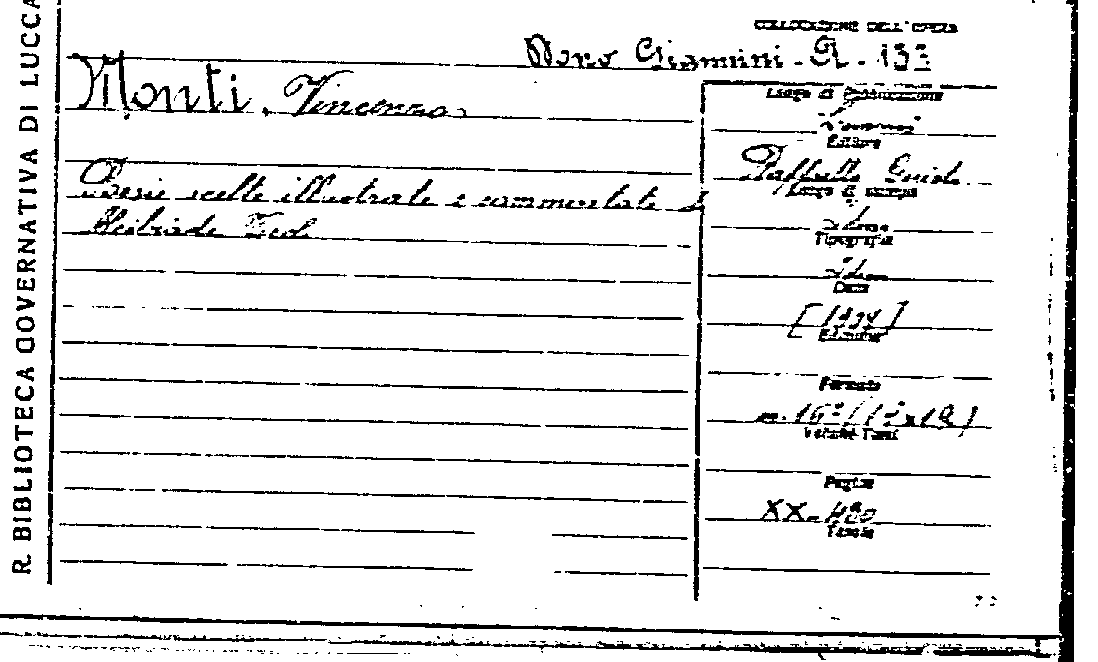 R. BIBLIOTECA GOVERNATIVA DI LUCCA
COLLOCAZIONE DELL'OPERA
Dono Giannini - A - 133
Monti, Vincenzo
Poesie scelte illustrate e commentate d
Alcibiade
Luogo di Pubblicazione
Editore
Raffaello Giusti
Luogo di stampa
Idem
Tipografia
Idem
Data
Edizione
Formato
Volume Tomi
Pagine
XX-480
Tavole